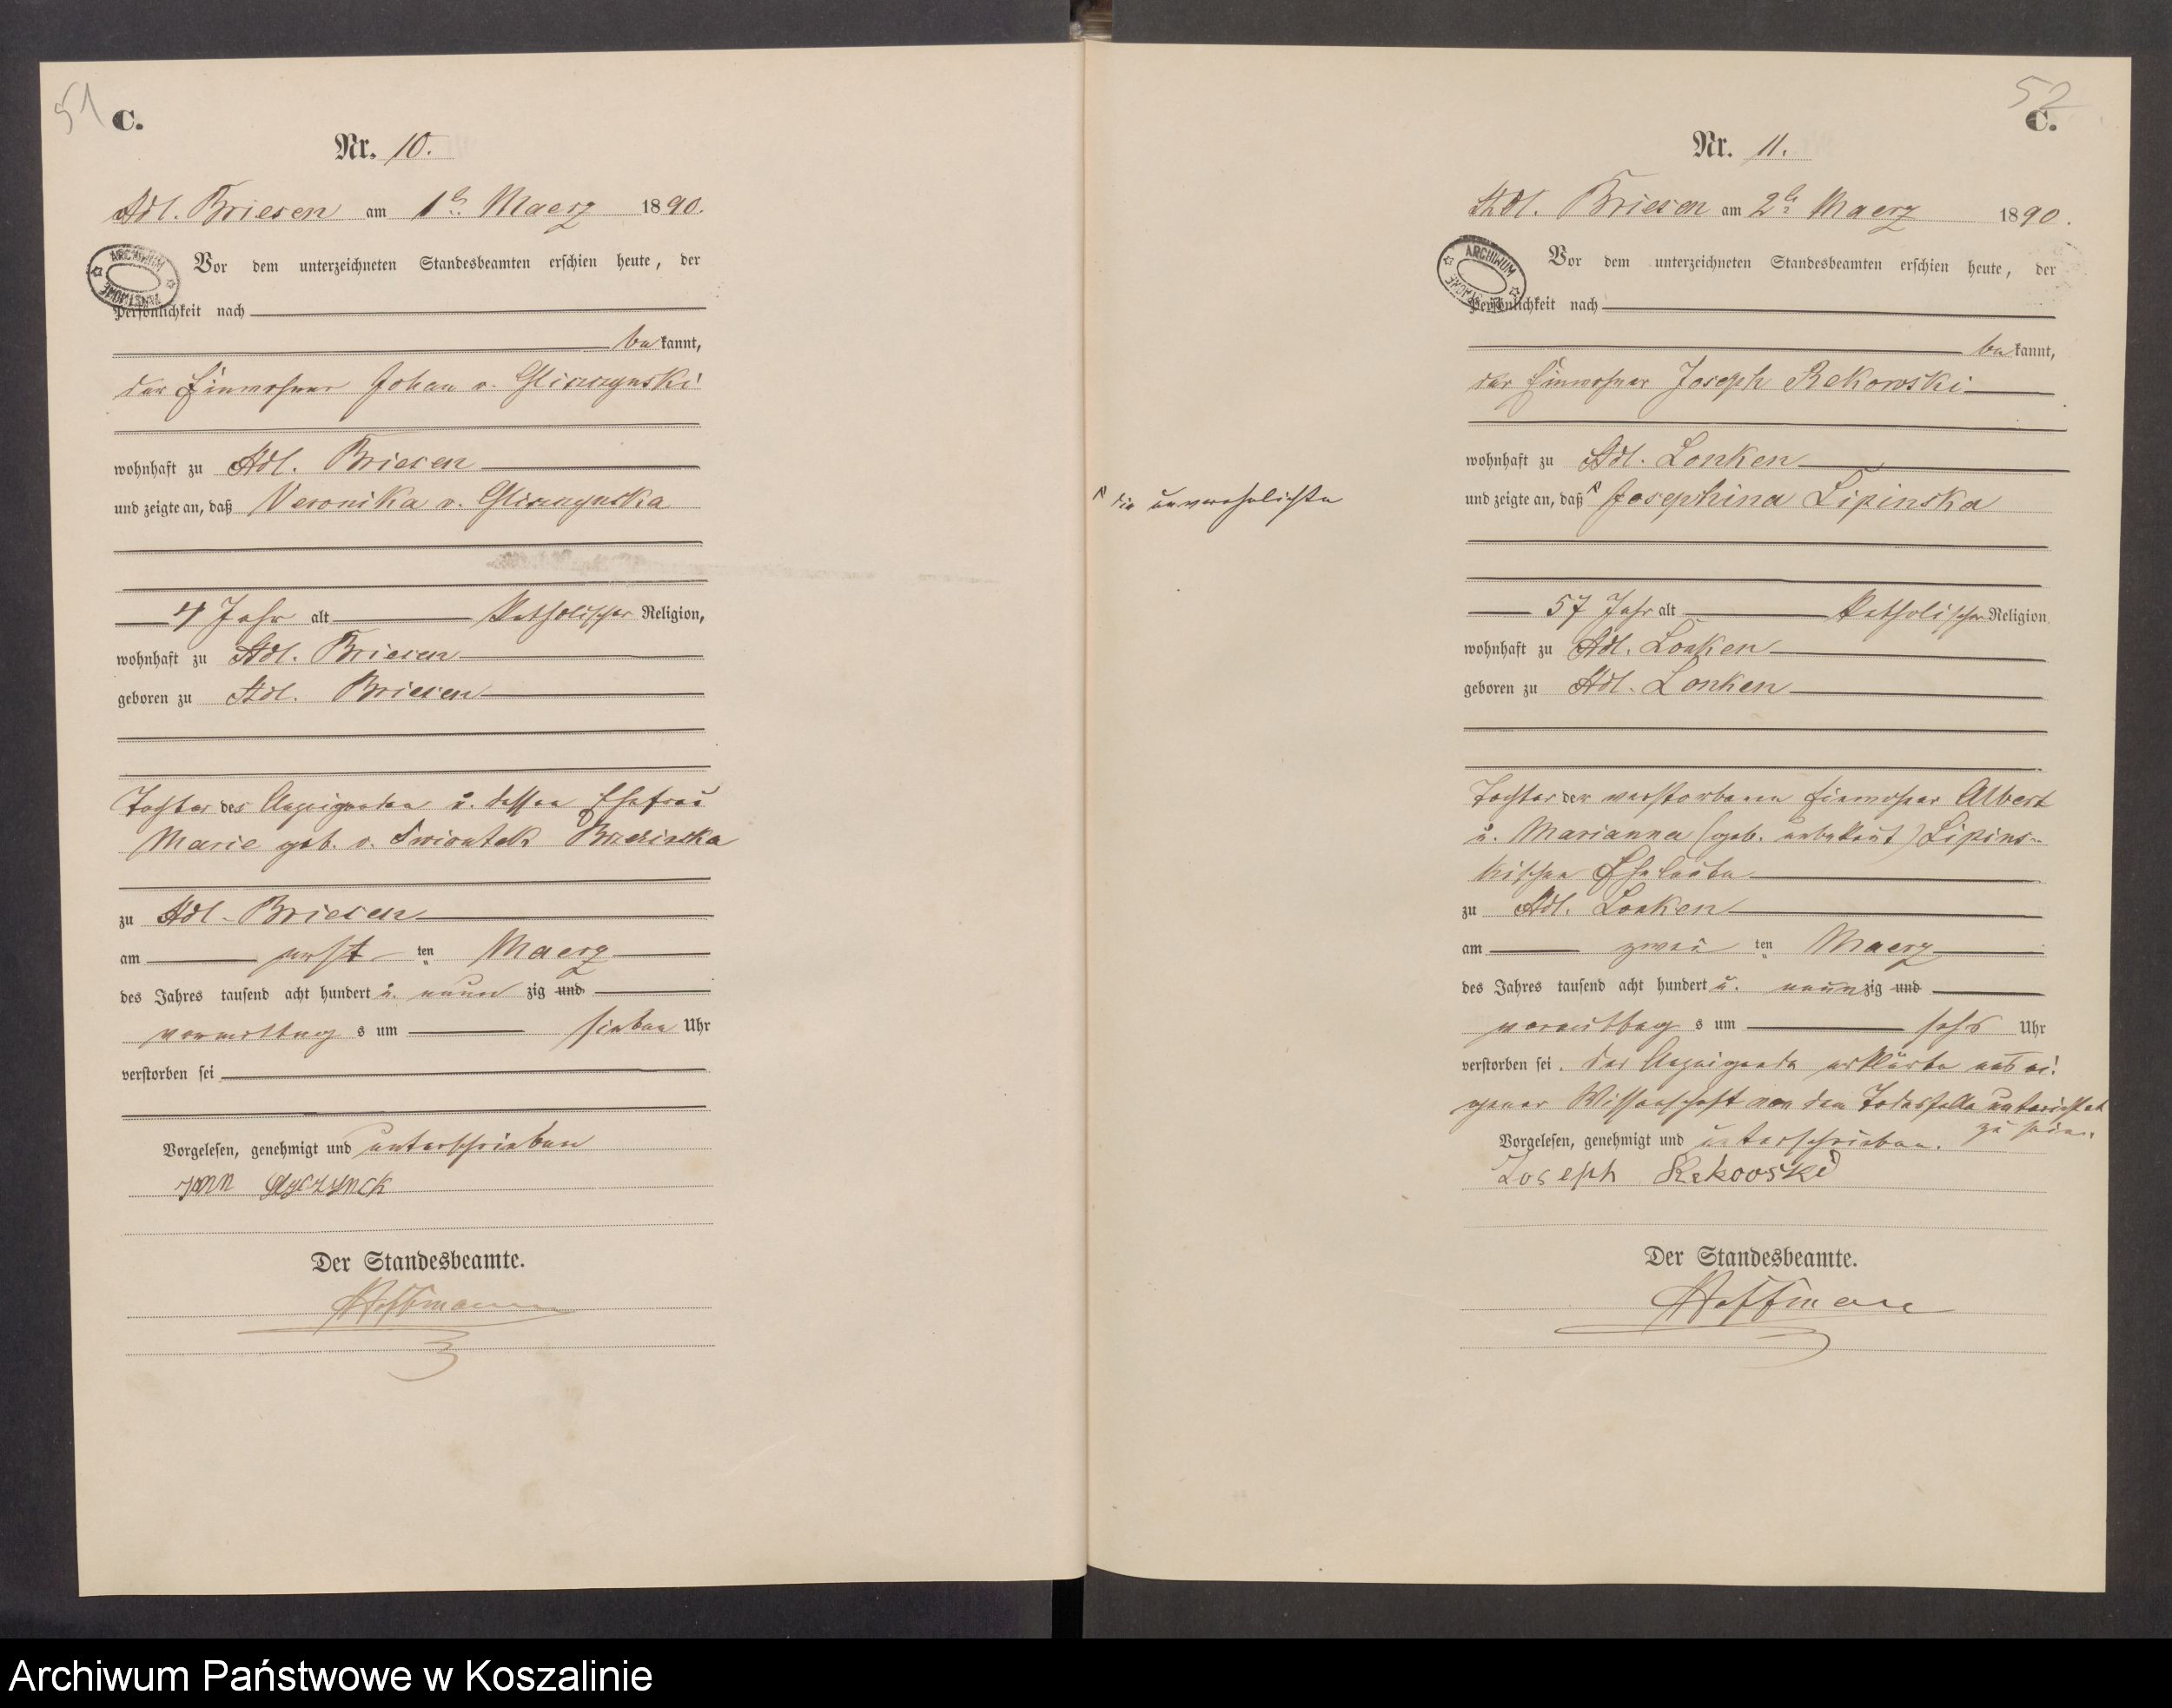 51
C.
Nr. 10.
Adl. Briesen am 1ts Maerz 1890.
Vor dem unterzeichneten Standesbeamten erschien heute, der
Persönlichkeit nach
bekannt,
der Einwohner Johan v.
wohnhaft zu Adl. Briesen
und zeigte an, daß Veronika v.
4 Jahr alt Katholischer Religion,
wohnhaft zu Adl. Briesen
geboren zu Adl. Briesen
Tochter des Anzeigenden u. dessen Ehefrau
Marie geb. v.
zu Adl. Briesen
am erst ten Maerz
des Jahres tausend acht hundert u. neun zig und
vormittag s um sieben Uhr
verstorben sei
Vorgelesen, genehmigt und unterschrieben
Der Standesbeamte.
Hoffmann
52
C.
Nr. 11.
Adl. Briesen am 2ts Maerz 1890.
ARCHIWUM
Vor dem unterzeichneten Standesbeamten erschien heute, der
Persönlichkeit nach
bekannt,
der Einwohner Joseph Rekowski
wohnhaft zu Adl. Lonken
die unverehelichte
und zeigte an, daß Josephina Lipinska
57 Jahr alt Katholischer Religion
wohnhaft zu Adl. Lonken
geboren zu Adl. Lonken
Tochter der verstorbenen Einwohner Albert
u. Marianna (geb. unbekant) Lipins-
kischen Eheleute
zu Adl. Lonken
am zwei ten Maerz
des Jahres tausend acht hundert u. neunzig und
vormittag s um sechs Uhr
verstorben sei. Der Anzeigende erklärte aus ei-
gener Wissenschaft von dem Todesfalle unterichtet
zu sein.
Vorgelesen, genehmigt und unterschrieben.
Joseph Rekowski
Der Standesbeamte.
Hoffmann
Archiwum Państwowe w Koszalinie